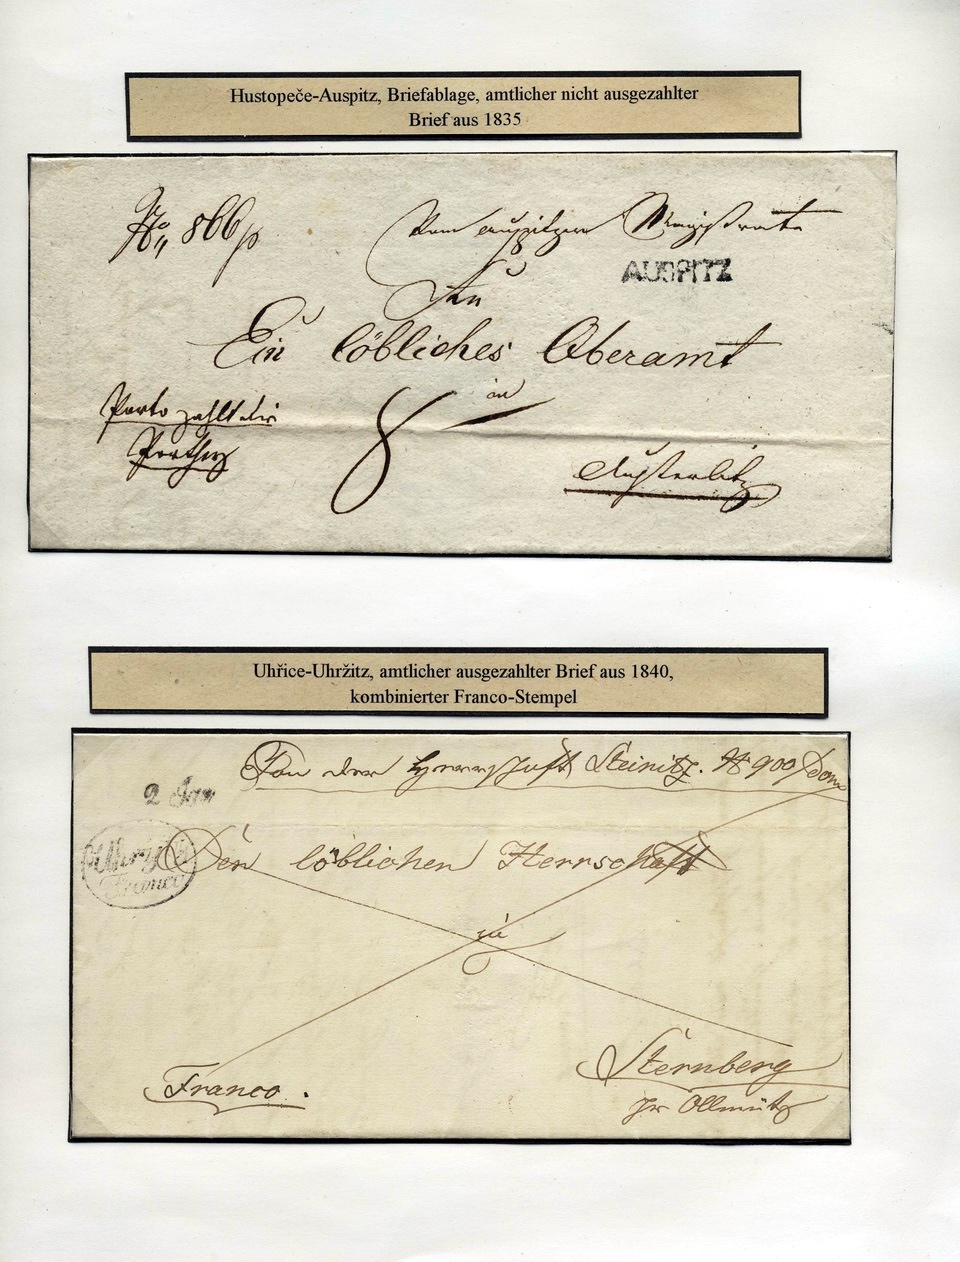 Hustopeče-Auspitz, Briefablage, amtlicher nicht ausgezahlter
Brief aus 1835
No 866/p
Vom auspitzer Magistrate
AUSPITZ
An
Ein löbliches Oberamt
in
Porto zahlt die
Parthey
8
Austerlitz
Uhřice-Uhržitz, amtlicher ausgezahlter Brief aus 1840,
kombinierter Franco-Stempel
Von der Herrschaft Steinitz. N 900/Dom
2 Jan
Franco
Den löblichen Herrschaft
zu
Sternberg
Franco.
pr Ollmütz